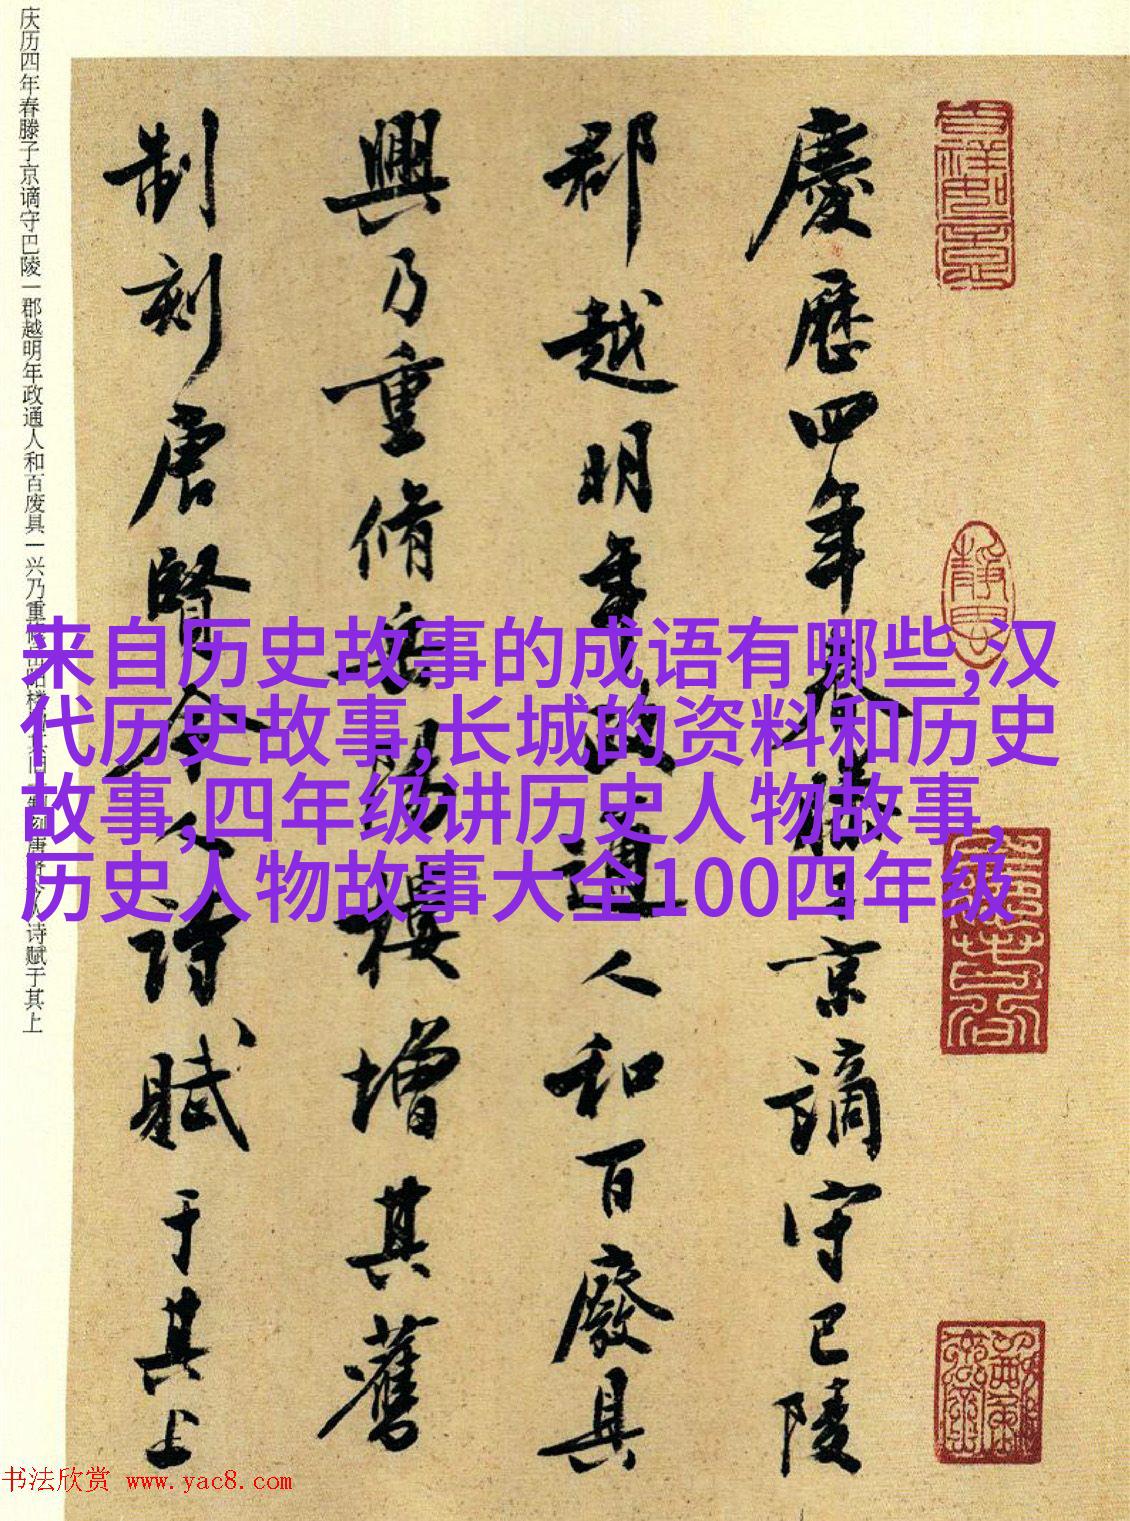 慶歷四年春滕子京謫守巴陵
郡越明年政通人和百廢具
興乃重脩岳陽樓增其舊
制刻唐賢今人詩賦于其上
庆历四年春滕子京谪守巴陵一郡越明年政通人和百废具一兴乃重修岳阳楼
制刻唐贤今人诗赋于其上
来自历史故事的成语有哪些,汉
代历史故事,长城的资料和历史
故事,四年级讲历史人物故事,
历史人物故事大全100四年级
书法欣赏 www.yac8.com